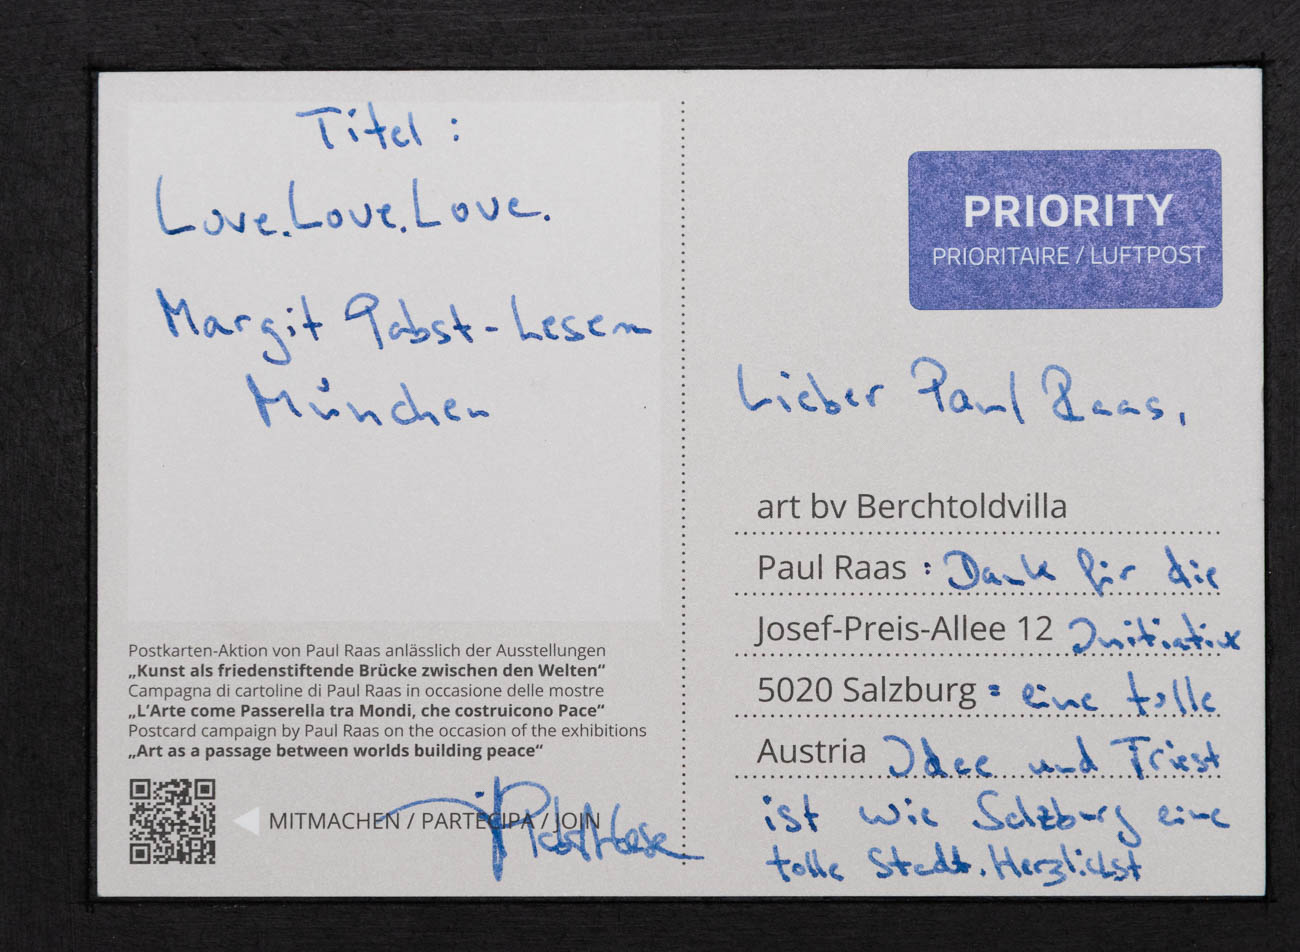 Titel :
Love.Love.Love.
Margit Pabst-Lesem
München
Postkarten-Aktion von Paul Raas anlässlich der Ausstellungen
„Kunst als friedenstiftende Brücke zwischen den Welten“
Campagna di cartoline di Paul Raas in occasione delle mostre
„L’Arte come Passerella tra Mondi, che costruicono Pace“
Postcard campaign by Paul Raas on the occasion of the exhibitions
„Art as a passage between worlds building peace“
MITMACHEN / PARTECIPA / JOIN
PRIORITY
PRIORITAIRE / LUFTPOST
Lieber Paul Raas,
art bv Berchtoldvilla
Paul Raas : Dank für die
Josef-Preis-Allee 12 Initiative
5020 Salzburg = eine tolle
Austria Idee und Triest
ist wie Salzburg eine
tolle Stadt. Herzlichst